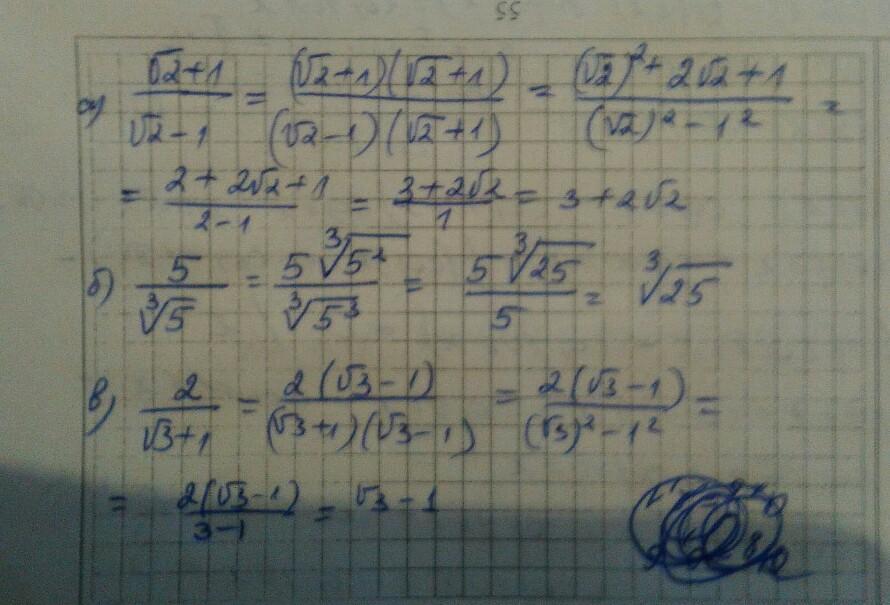 55
а) (√2+1)/(√2-1) = ((√2+1)(√2+1))/((√2-1)(√2+1)) = ((√2)²+2√2+1)/((√2)²-1²) =
= (2+2√2+1)/(2-1) = (3+2√2)/1 = 3+2√2
б) 5/∛5 = (5∛5²)/(∛5³) = (5∛25)/5 = ∛25
в) 2/(√3+1) = (2(√3-1))/((√3+1)(√3-1)) = (2(√3-1))/((√3)²-1²) =
= (2(√3-1))/(3-1) = √3-1